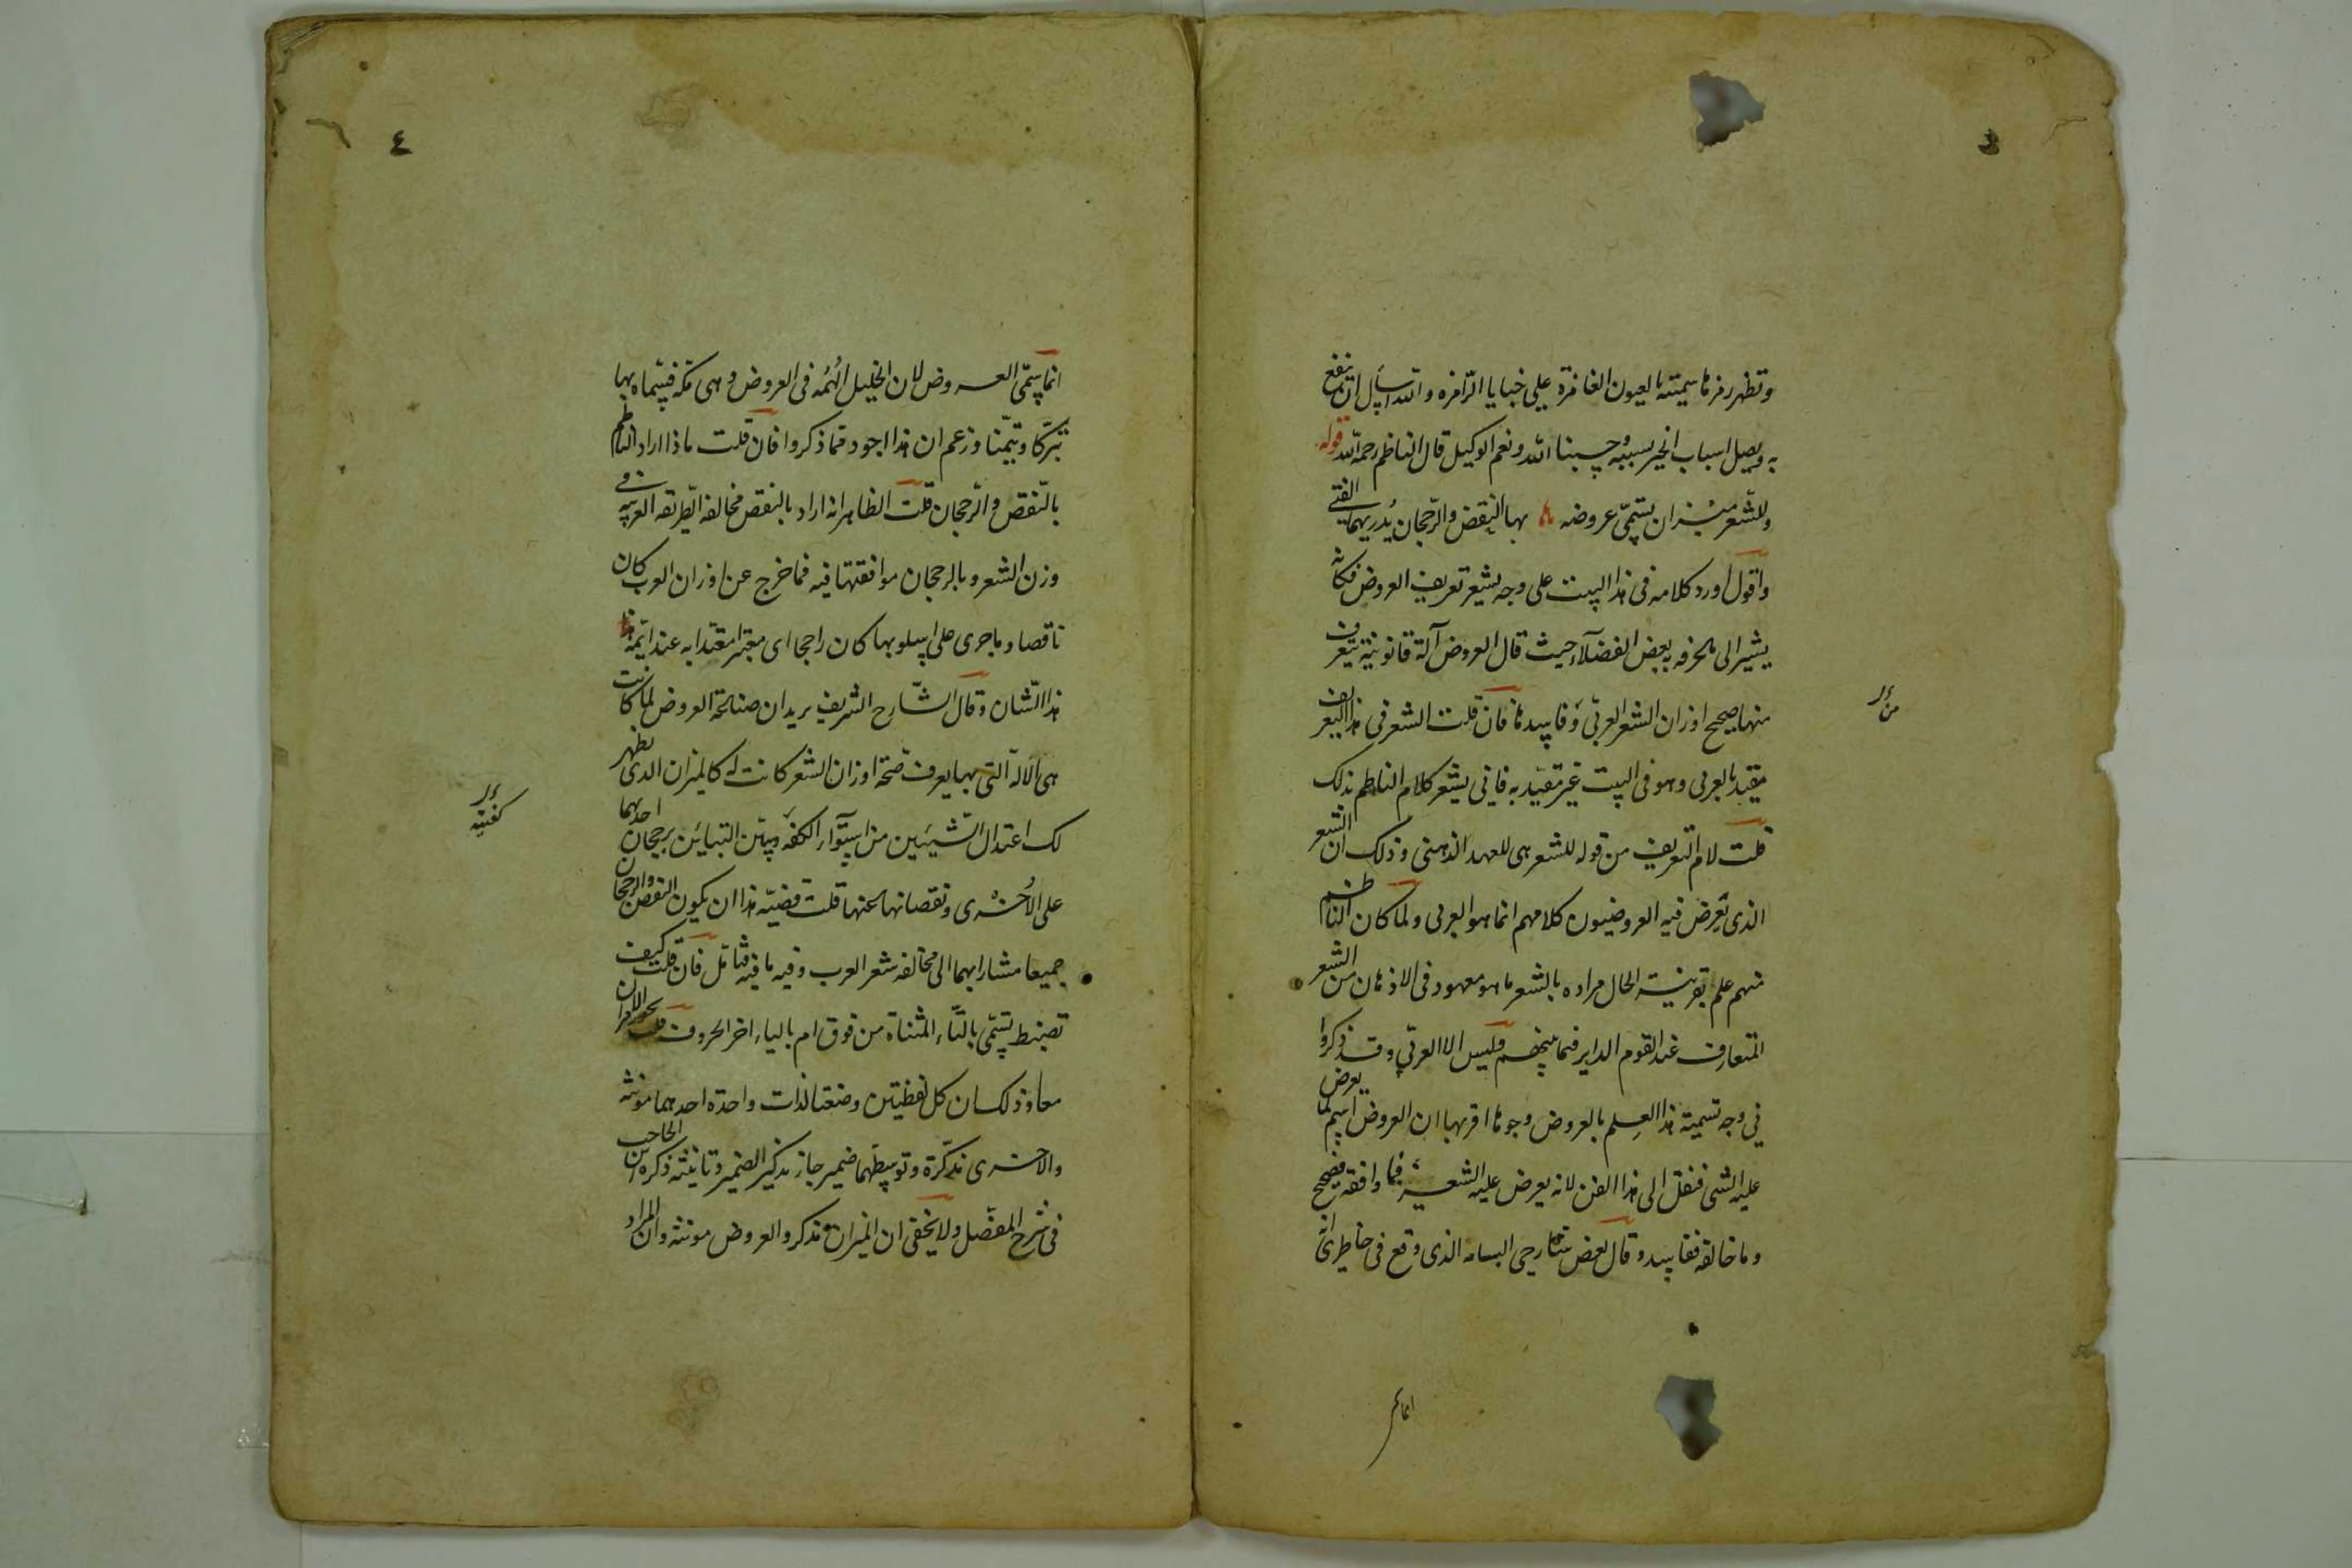 ٣
وتظهر رمزها سميته بالعيون الغامزة على خبايا الرامزه والله اسأل ان ينفع
به ويصل اسباب الخير بسببه وحسبنا الله ونعم الوكيل قال الناظم رحمه الله قوله
وللشعر ميزان تسمى عروضه ها بها النقض والرجحان يدريهما الفتى
واقول اورد كلامه فى هذا البيت على وجه يشعر تعريف العروض فكانه
يشير الى ما عرفه به بعض الفضلاء حيث قال العروض آلة قانونية يتعرف
منها صحيح اوزان الشعر العربى وفاسدها فان قلت الشعر فى هذا التعريف
مقيد بالعربى وهو فى البيت غير مقيد به فانى يشعر كلام الناظم بذلك
قلت لام التعريف من قوله للشعر هى للعهد الذهنى وذلك ان الشعر
الذى تعرض فيه العروضيون كلامهم انما هو العربى ولما كان الناظم
منهم علم بقرينة الحال مراده بالشعر ما هو معهود فى الاذهان من الشعر
المتعارف عند القوم الداير فيما بينهم فليس الا العربى وقد ذكروا
فى وجه تسمية هذا العلم بالعروض وجوها اقربها ان العروض اسم لما يعرض
عليه الشئ فنقل الى هذا الفن لانه يعرض عليه الشعر فما وافقه فصحيح
وما خالفه ففاسد وقال بعض شارحى البسامه الذى وقع فى خاطرى انه
انما سم
من
٤
انما سمى العروض لان الخليل الهمه فى العروض وهى مكة فسماه بها
تبركا وتيمنا وزعم ان هذا اجود مما ذكروا فان قلت ماذا اراد الناظم
بالنقص والرجحان قلت الظاهر انه اراد بالنقص مخالفة الطريقة العربيه فى
وزن الشعر وبالرجحان موافقتها فيه فما خرج عن اوزان العرب كان
ناقصا وما جرى على اسلوبها كان راجحا اى معتبرا معتدا به عند ائمة
هذا الشان وقال الشارح الشريف يريد ان صناعة العروض لما كانت
هى الالة التى بها يعرف صحة اوزان الشعر كانت له كالميزان الذى يظهر
لك اعتدال الشيئين من استواء الكفه وبين التباين برجحان احديهما
على الاخرى ونقصانها عنها قلت قضية هذا ان يكون النقص والرجحان
جميعا مشارا بهما الى مخالفة شعر العرب وفيه ما فيه فتأمل فان قلت كيف
تضبط تسمى بالتاء المثناة من فوق ام بالياء اخر الحروف قلت يجوز الامران
معا وذلك ان كل لفظتين وضعتا لذات واحدة احدهما مونثة
والاخرى مذكرة وتوسطهما ضمير جاز تذكير الضمير وتانيثه ذكره ابن الحاجب
فى شرح المفصل ولا يخفى ان الميزان مذكر والعروض مونثه وان المراد
كفتيه